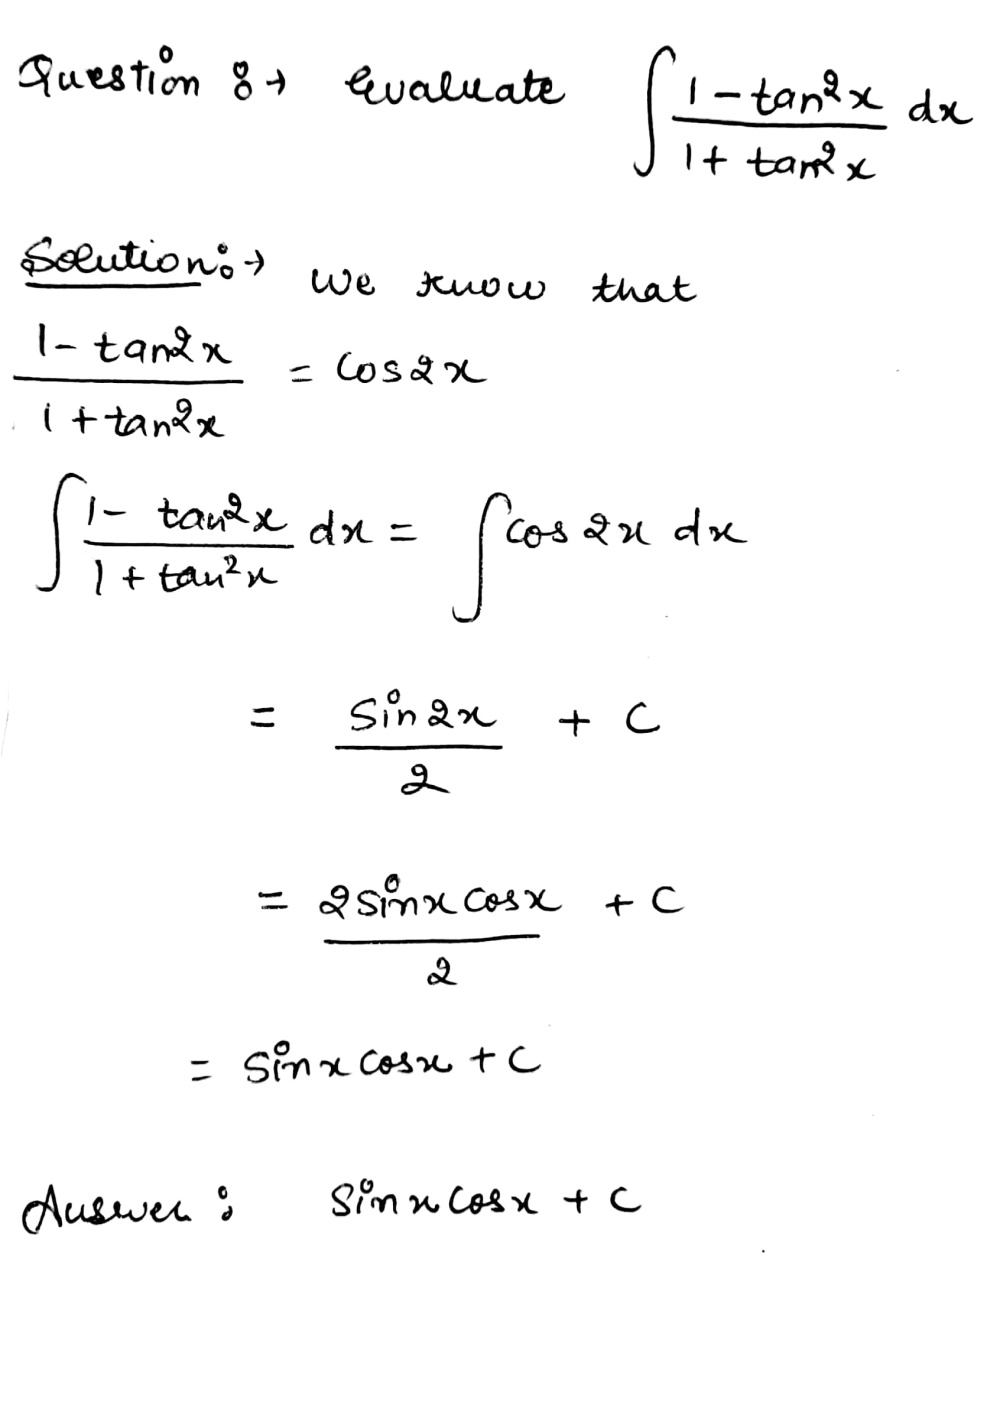 Question :→ Evaluate ∫ (1 - tan²x)/(1 + tan²x) dx
Solution :→ We know that
(1 - tan²x)/(1 + tan²x) = cos2x
∫ (1 - tan²x)/(1 + tan²x) dx = ∫ cos 2x dx
= sin 2x/2 + C
= 2 sinx cosx/2 + C
= sinx cosx + C
Answer : sinx cosx + C